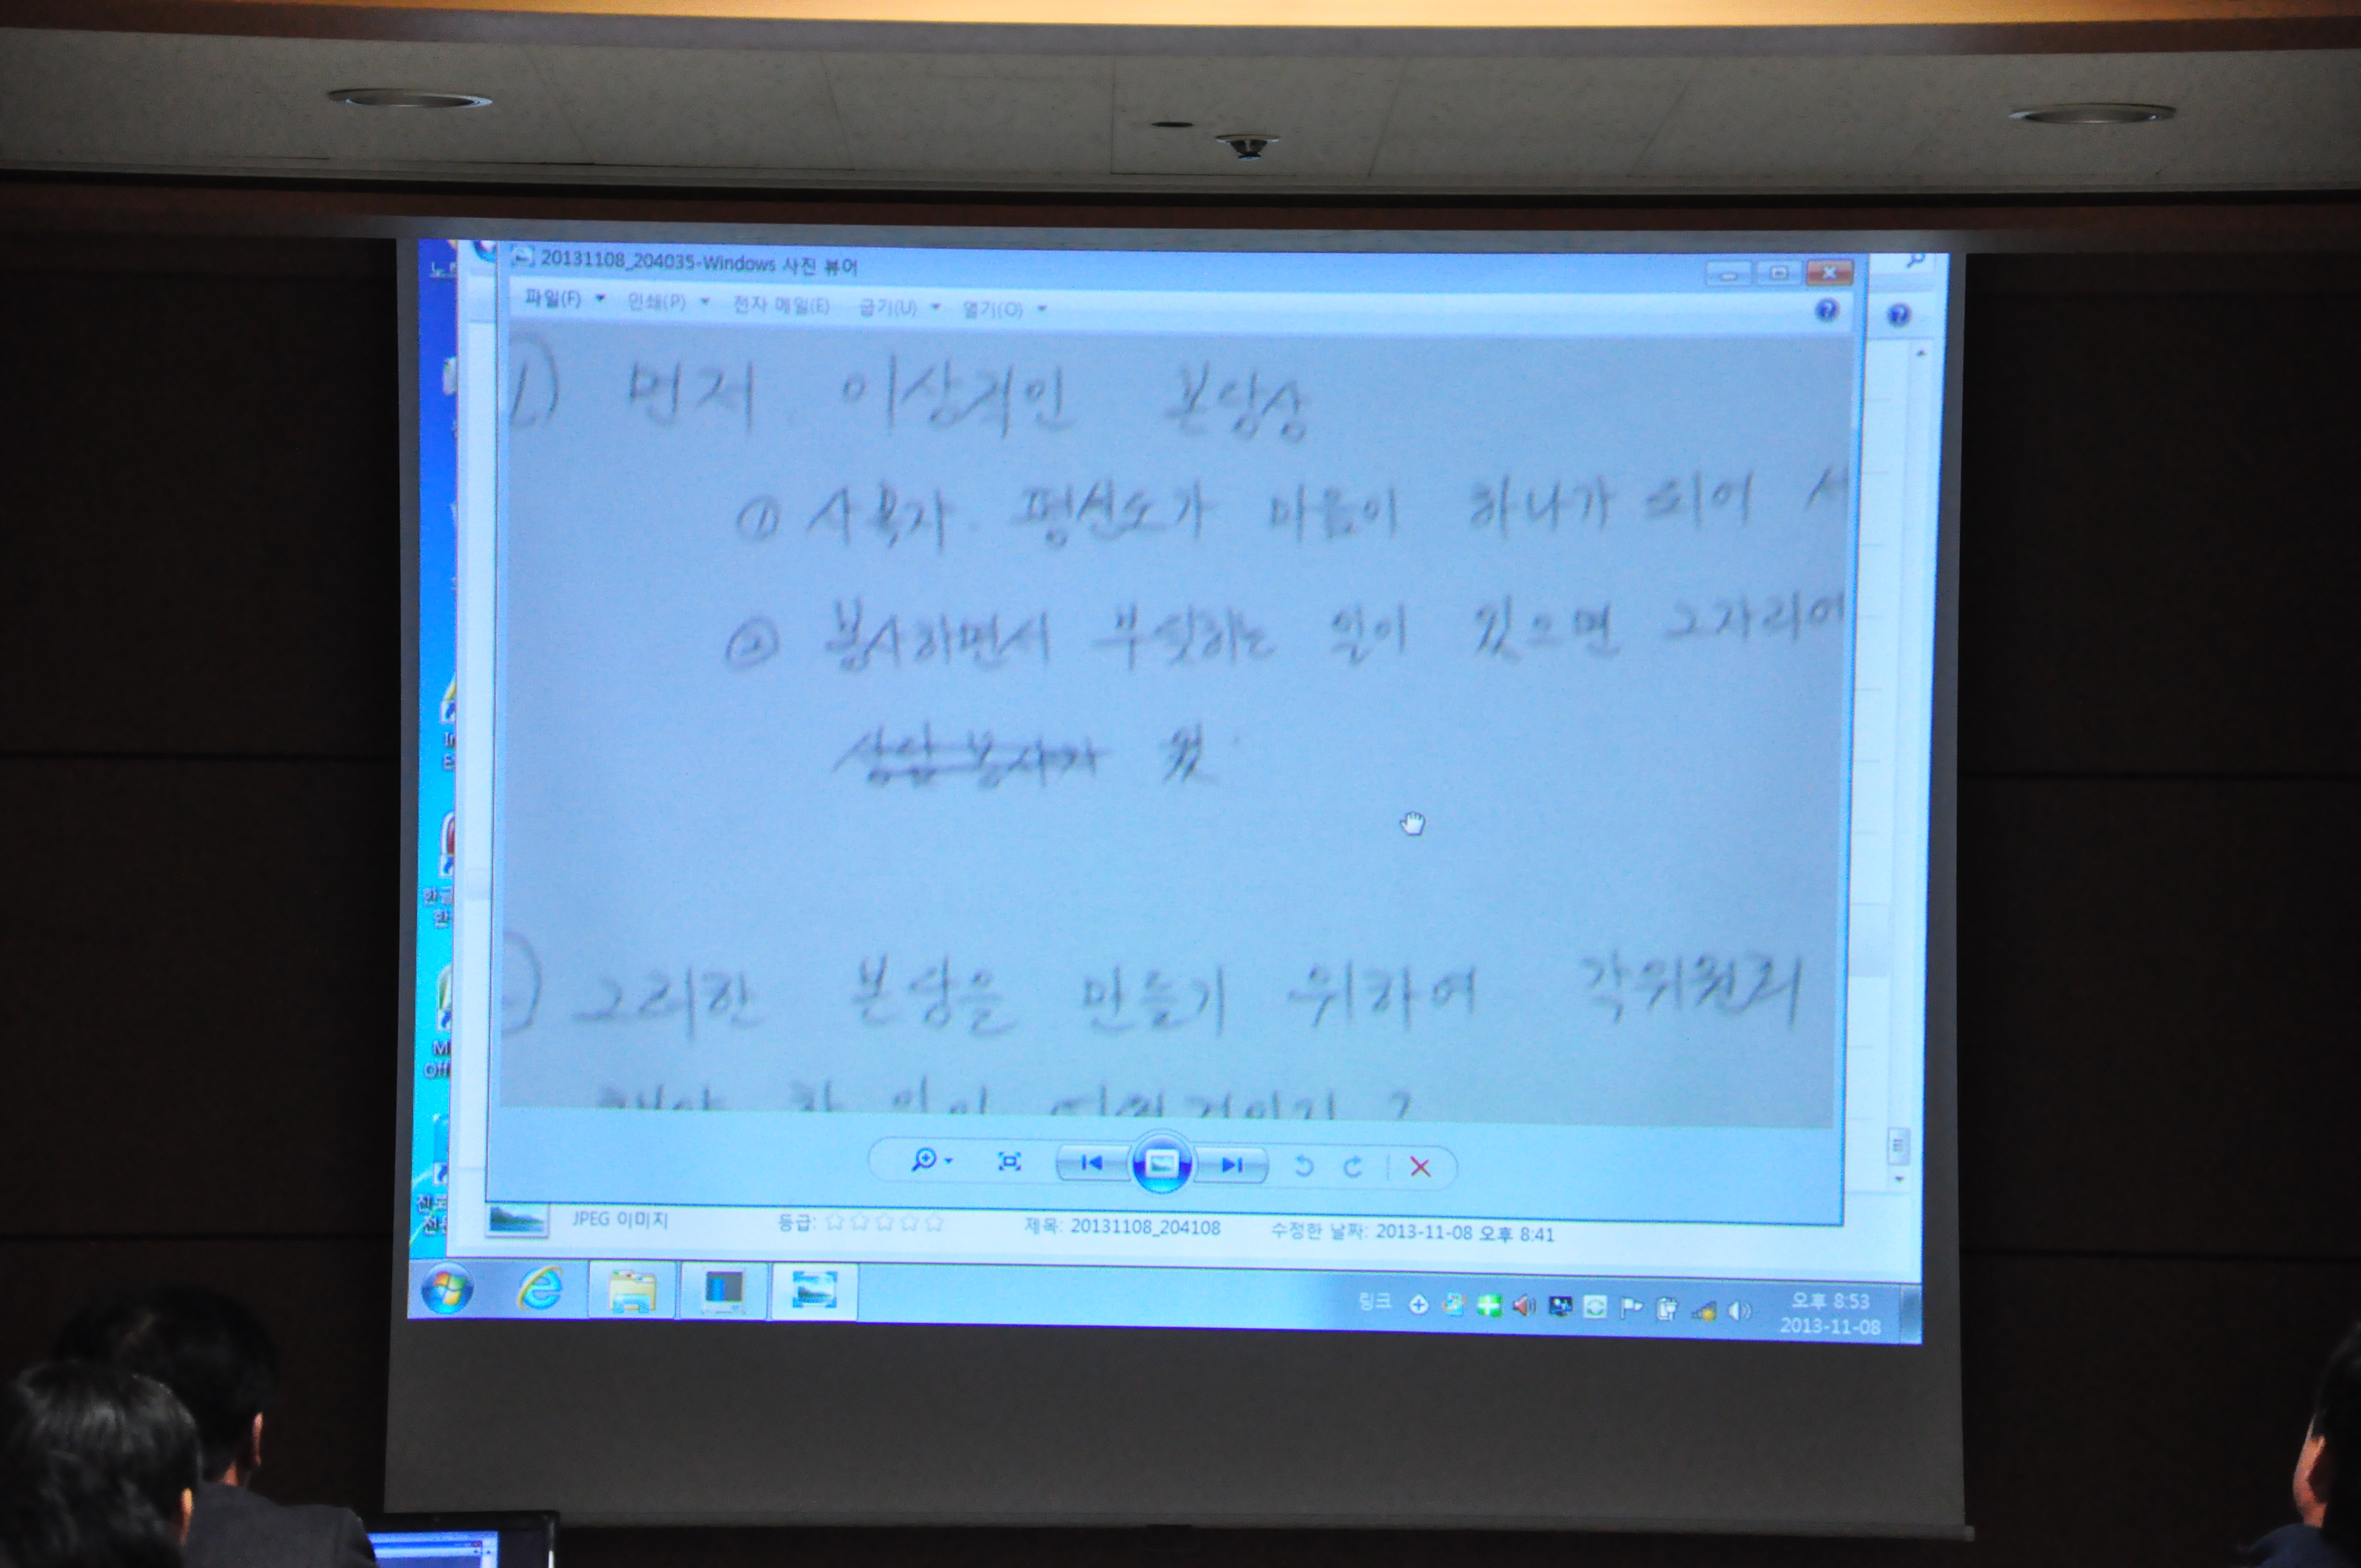 20131108_204035-Windows 사진 뷰어
파일(F) 인쇄(P) 전자 메일(E) 굽기(U) 열기(O)
1) 먼저 이상적인 본당상
① 사목자. 평신도가 마음이 하나가 되어
② 봉사하면서 부딪히는 일이 있으면 그자리에
상담 봉사가
그러한 본당을 만들기 위하여 각위원회
해야 할 일이 거인지 ?
JPEG 이미지 등급: 제목: 20131108_204108 수정한 날짜: 2013-11-08 오후 8:41
링크 오후 8:53
2013-11-08